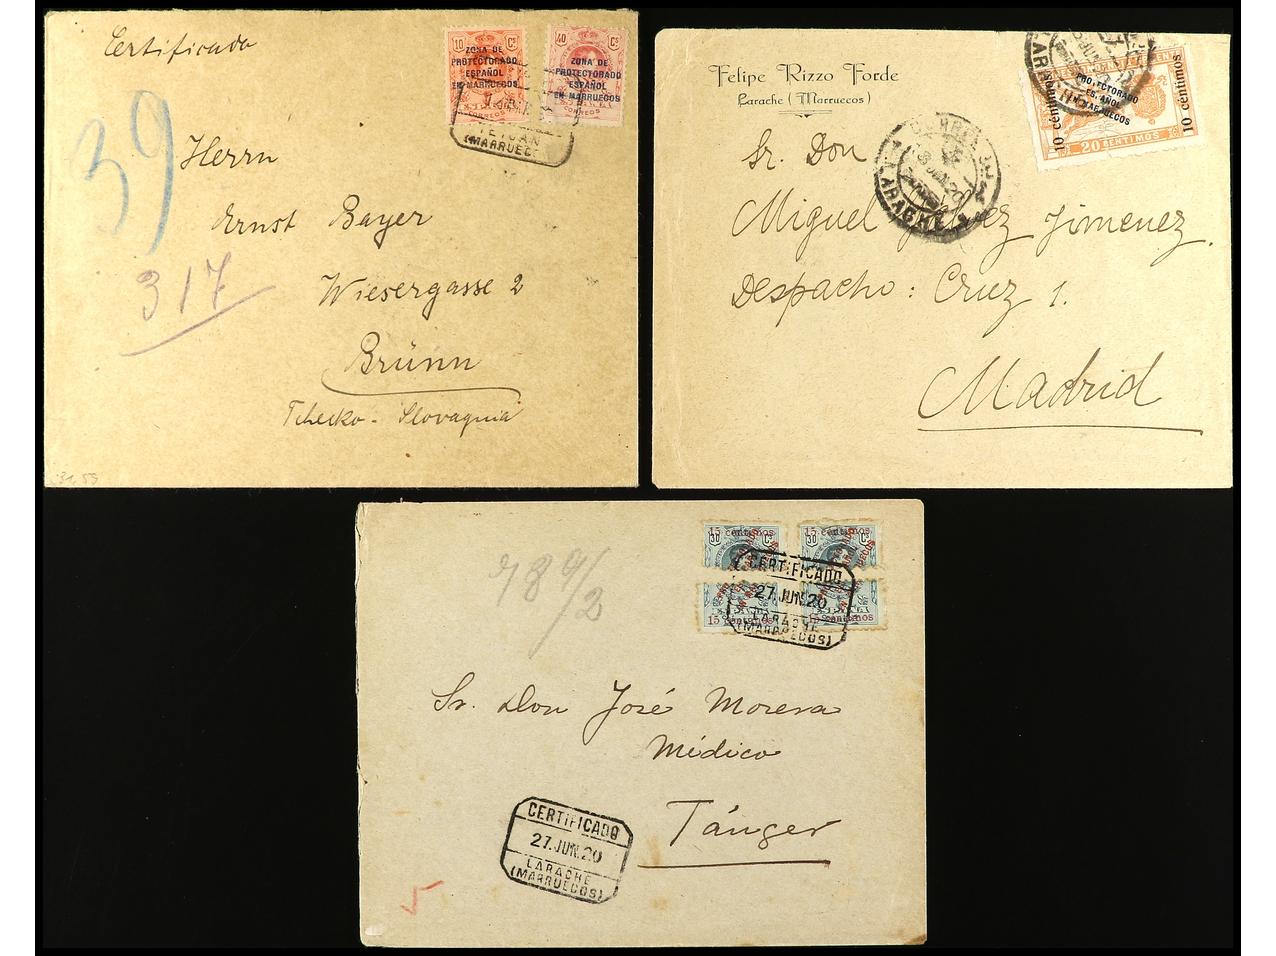 Certificado
10 Cs
ZONA DE
PROTECTORADO
ESPAÑOL
EN MARRUECOS
40 Cs
ZONA DE
PROTECTORADO
ESPAÑOL
EN MARRUECOS
CORREOS
TETUAN
(MARRUEC
39
317
Herrn
Ernst Bayer
Wiesergasse 2
Brünn
Tchecko-Slovaquia
Felipe Rizzo Forde
Larache (Marruecos)
LARACHE
10 céntimos
PROTECTORADO
ESPAÑOL
EN MARRUECOS
10 céntimos
20 CENTIMOS
LARACHE
Sr. Don
Miguel Jimenez.
Despacho: Cruz 1.
Madrid
789/2
15 céntimos
15 céntimos
15 céntimos
15 céntimos
CERTIFICADO
27.JUN.20
LARACHE
(MARRUECOS)
Sr. Don José Morera
Médico
Tánger
CERTIFICADO
27.JUN.20
LARACHE
(MARRUECOS)